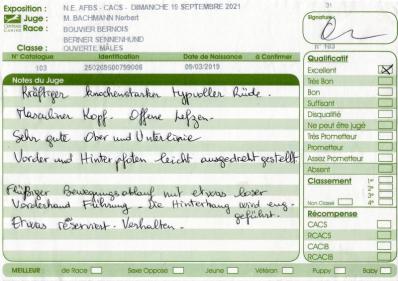 Exposition : N.E. AFBS - CACS - DIMANCHE 19 SEPTEMBRE 2021
Juge : M. BACHMANN Norbert
Race : BOUVIER BERNOIS
BERNER SENNENHUND
Classe : OUVERTE MÂLES
N° Catalogue Identification Date de Naissance à Confirmer
103 250269500799006 09/03/2019
Notes du Juge
Kräftiger knochenstarker typvoller Rüde.
Maskuliner Kopf. Offene Lefzen.
Sehr gute Ober und Unterlinie
Vorder und Hinterpfoten leicht ausgedreht gestellt
Flüßiger Bewegungsablauf mit etwas loser
Vorderhand Führung. Die Hinterhang wird eng
geführt.
Etwas reserviert. Verhalten.
31
Signature
N° 103
Qualificatif
Excellent
Très Bon
Bon
Suffisant
Disqualifié
Ne peut être jugé
Très Prometteur
Prometteur
Assez Prometteur
Absent
Classement
Non Classé
1
2
3
4
Récompense
CACS
RCACS
CACIB
RCACIB
MEILLEUR de Race Sexe Opposé Jeune Vétéran Puppy Baby